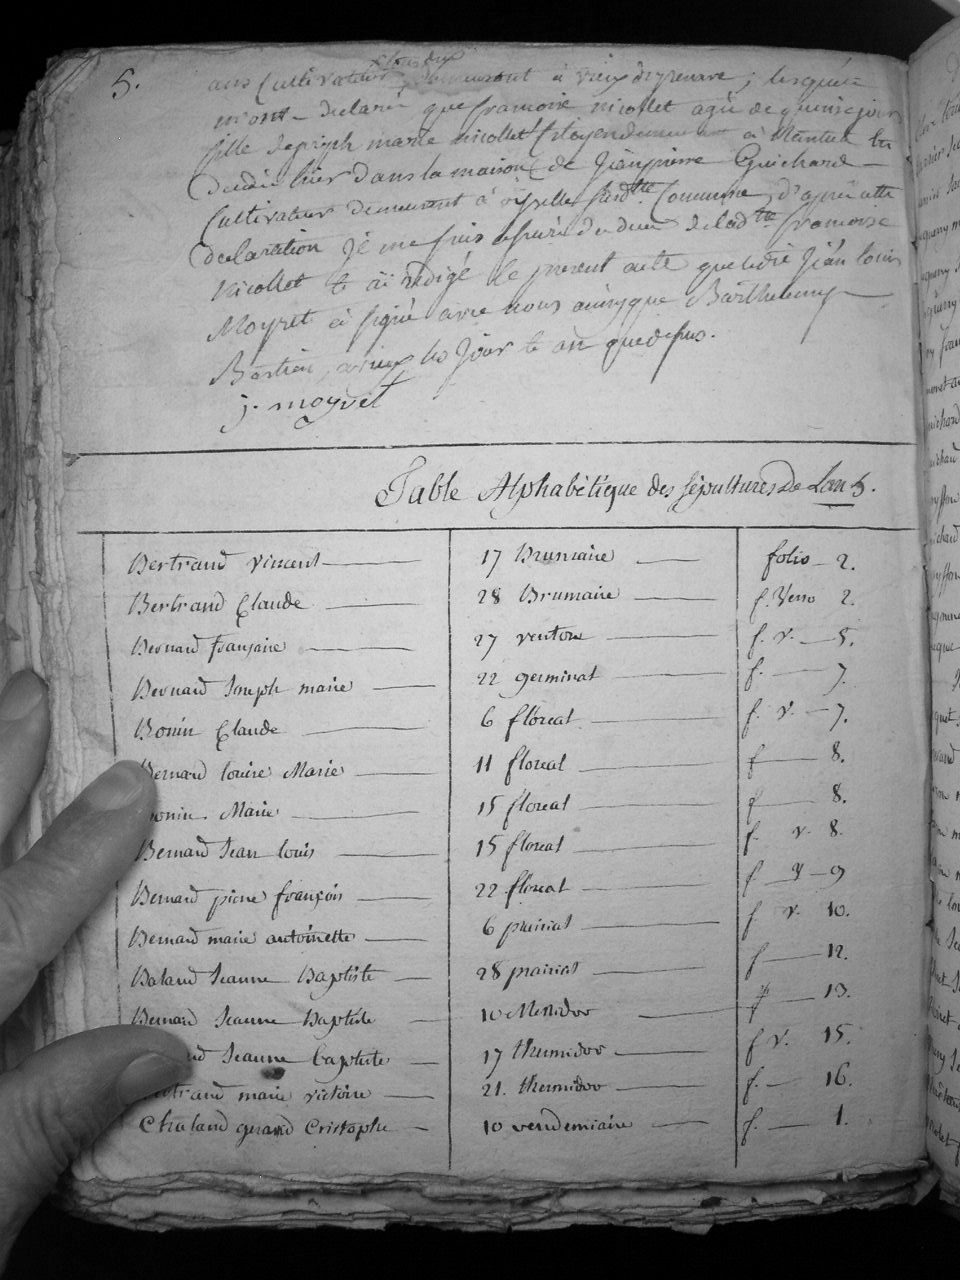 5.
ans Cultivateur demeurant à vieux d'yzenave; lesquels
m'ont declaré que francoise nicollet agée de quinze jours
fille de joseph marie nicollet Citoyen demeurant à Nantua est
Decedée hier dans la maison de Jean pierre Guichard
Cultivateur demeurant à susdtte Commune, d'après cette
declaration je me suis assuré du deces de ladtte francoise
Nicollet et ai rédigé le present acte que ledit Jean louis
Moyret a signé avec nous Barthelemy
Bastien, à vieux les jour et an que dessus.
j. moyret
Table Alphabétique des sépultures De Lan 5.
Bertrand vincent 17 Brumaire folio 2.
Bertrand Claude 28 Brumaire f. Verso 2.
Bernard françoise 27 ventose f. v. 5.
Bernard Joseph marie 22 germinal f. 7.
Bonin Claude 6 floreal f. v. 7.
Bernard louise Marie 11 floreal f 8.
onin Marie 15 floreal f 8.
Bernard Jean louis 15 floreal f. v. 8.
Bernard pierre françois 22 floreal f v 9
Bernard marie antoinette 6 prairial f v. 10.
Baland Jeanne Baptiste 28 prairial f 12.
Bernard Jeanne Baptiste 10 Messidor f 13.
d Jeanne baptiste 17 thermidor f v. 15.
trand marie victoire 21. thermidor f. 16.
Chaland gerard Cristophe 10 vendemiaire f. 1.